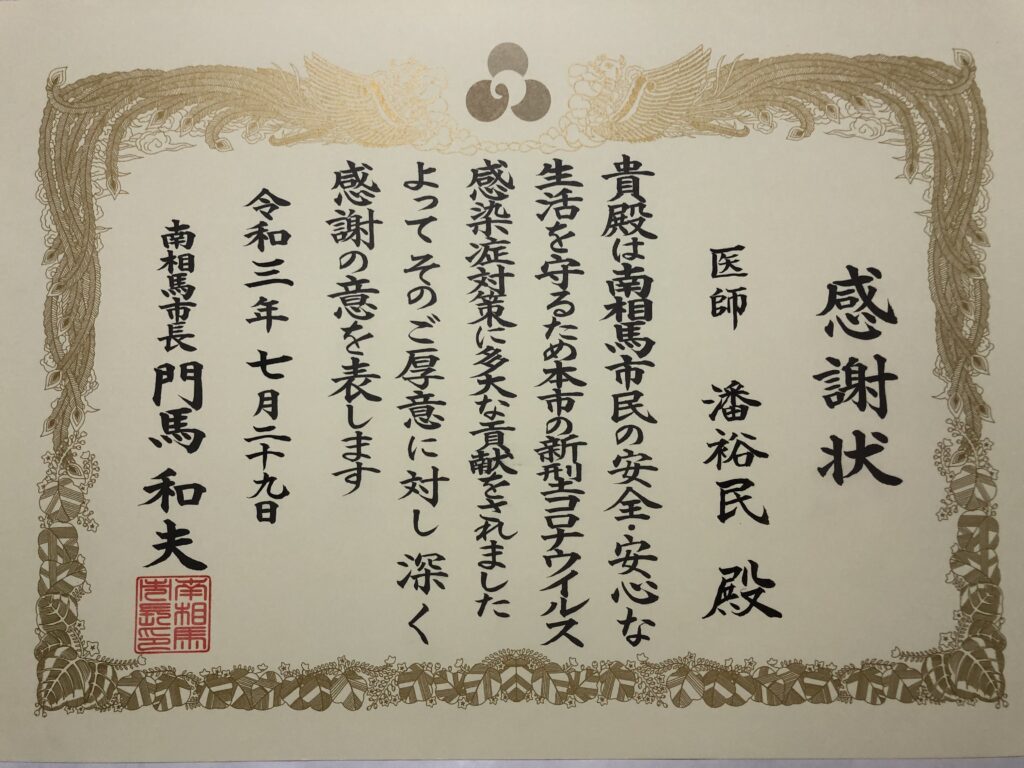 感謝状
医師 潘裕民 殿
貴殿は南相馬市民の安全・安心な
生活を守るため本市の新型コロナウイルス
感染症対策に多大な貢献をされました
よってそのご厚意に対し深く
感謝の意を表します
令和三年七月二十九日
南相馬市長 門馬和夫
南相馬
市長之印